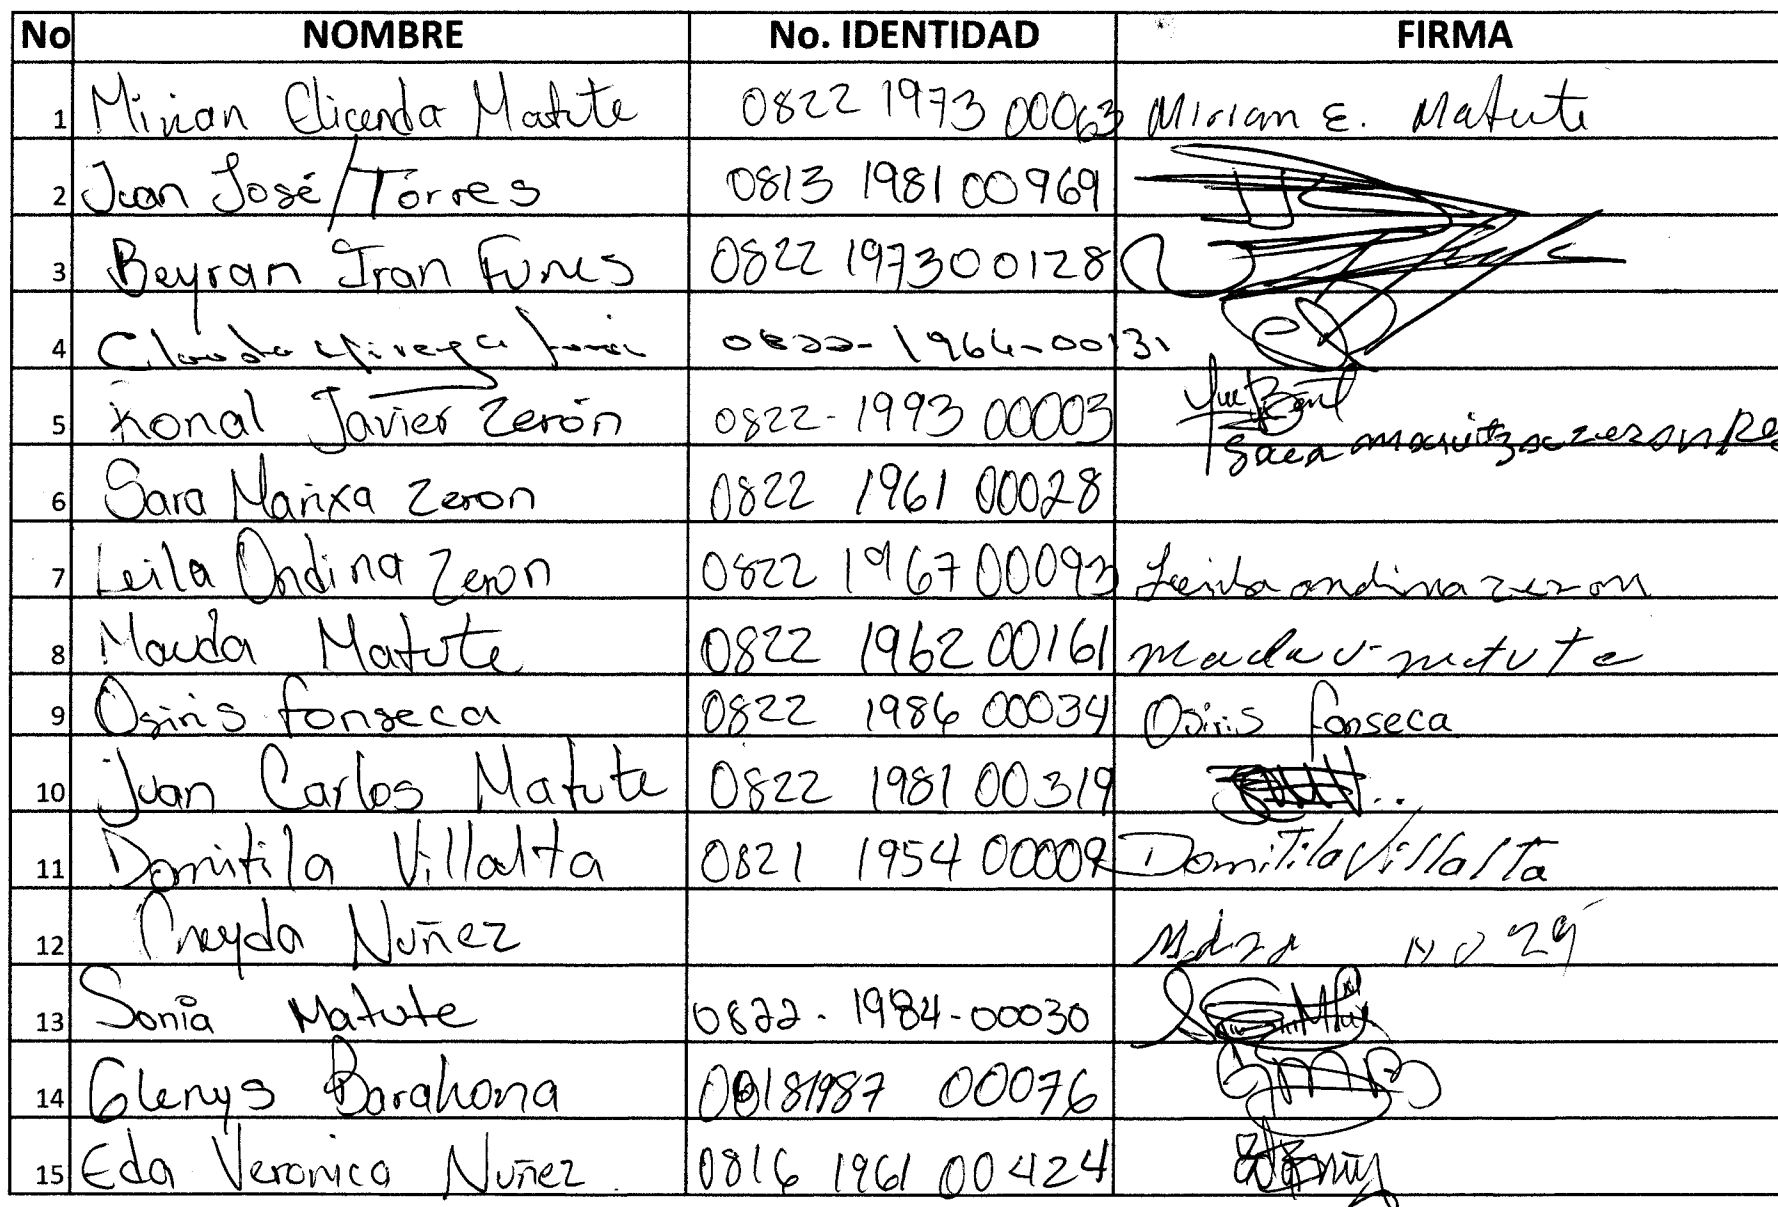 No NOMBRE No. IDENTIDAD FIRMA
1 Mirian Elicenda Matute 0822 1973 00063 Miriam E. Matute
2 Juan José Torres 0813 1981 00969
3 Beyran Iran Funes 0822 1973 00128
4 0822-1964-00131
5 Ronal Javier Zerón 0822-1993 00003
6 Sara Marixa Zeron 0822 1961 00028 Sara maritza zeron
7 Leila Ondina Zeron 0822 1967 00093 Leila ondina zeron
8 Mauda Matute 0822 1962 00161 mada v matute
9 Osiris fonseca 0822 1986 00034 Osiris fonseca
10 Juan Carlos Matute 0822 1981 00319
11 Domitila Villalta 0821 1954 00009 Domitila Villalta
12 Nuñez
13 Sonia Matute 0822-1984-00030
14 Glenys Barahona 1987 00076 GMB
15 Eda Veronica Nuñez 0816 1961 00424